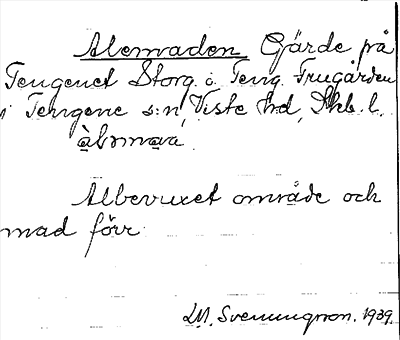 Alemaden Gärde på
Tengenet Storg. o. Teng. Frugården
i Tengene s:n, Viste hd, Skb. l.
àlǝmava
Albevuxet område och
mad förr.
D.M. Svenungsson. 1939.